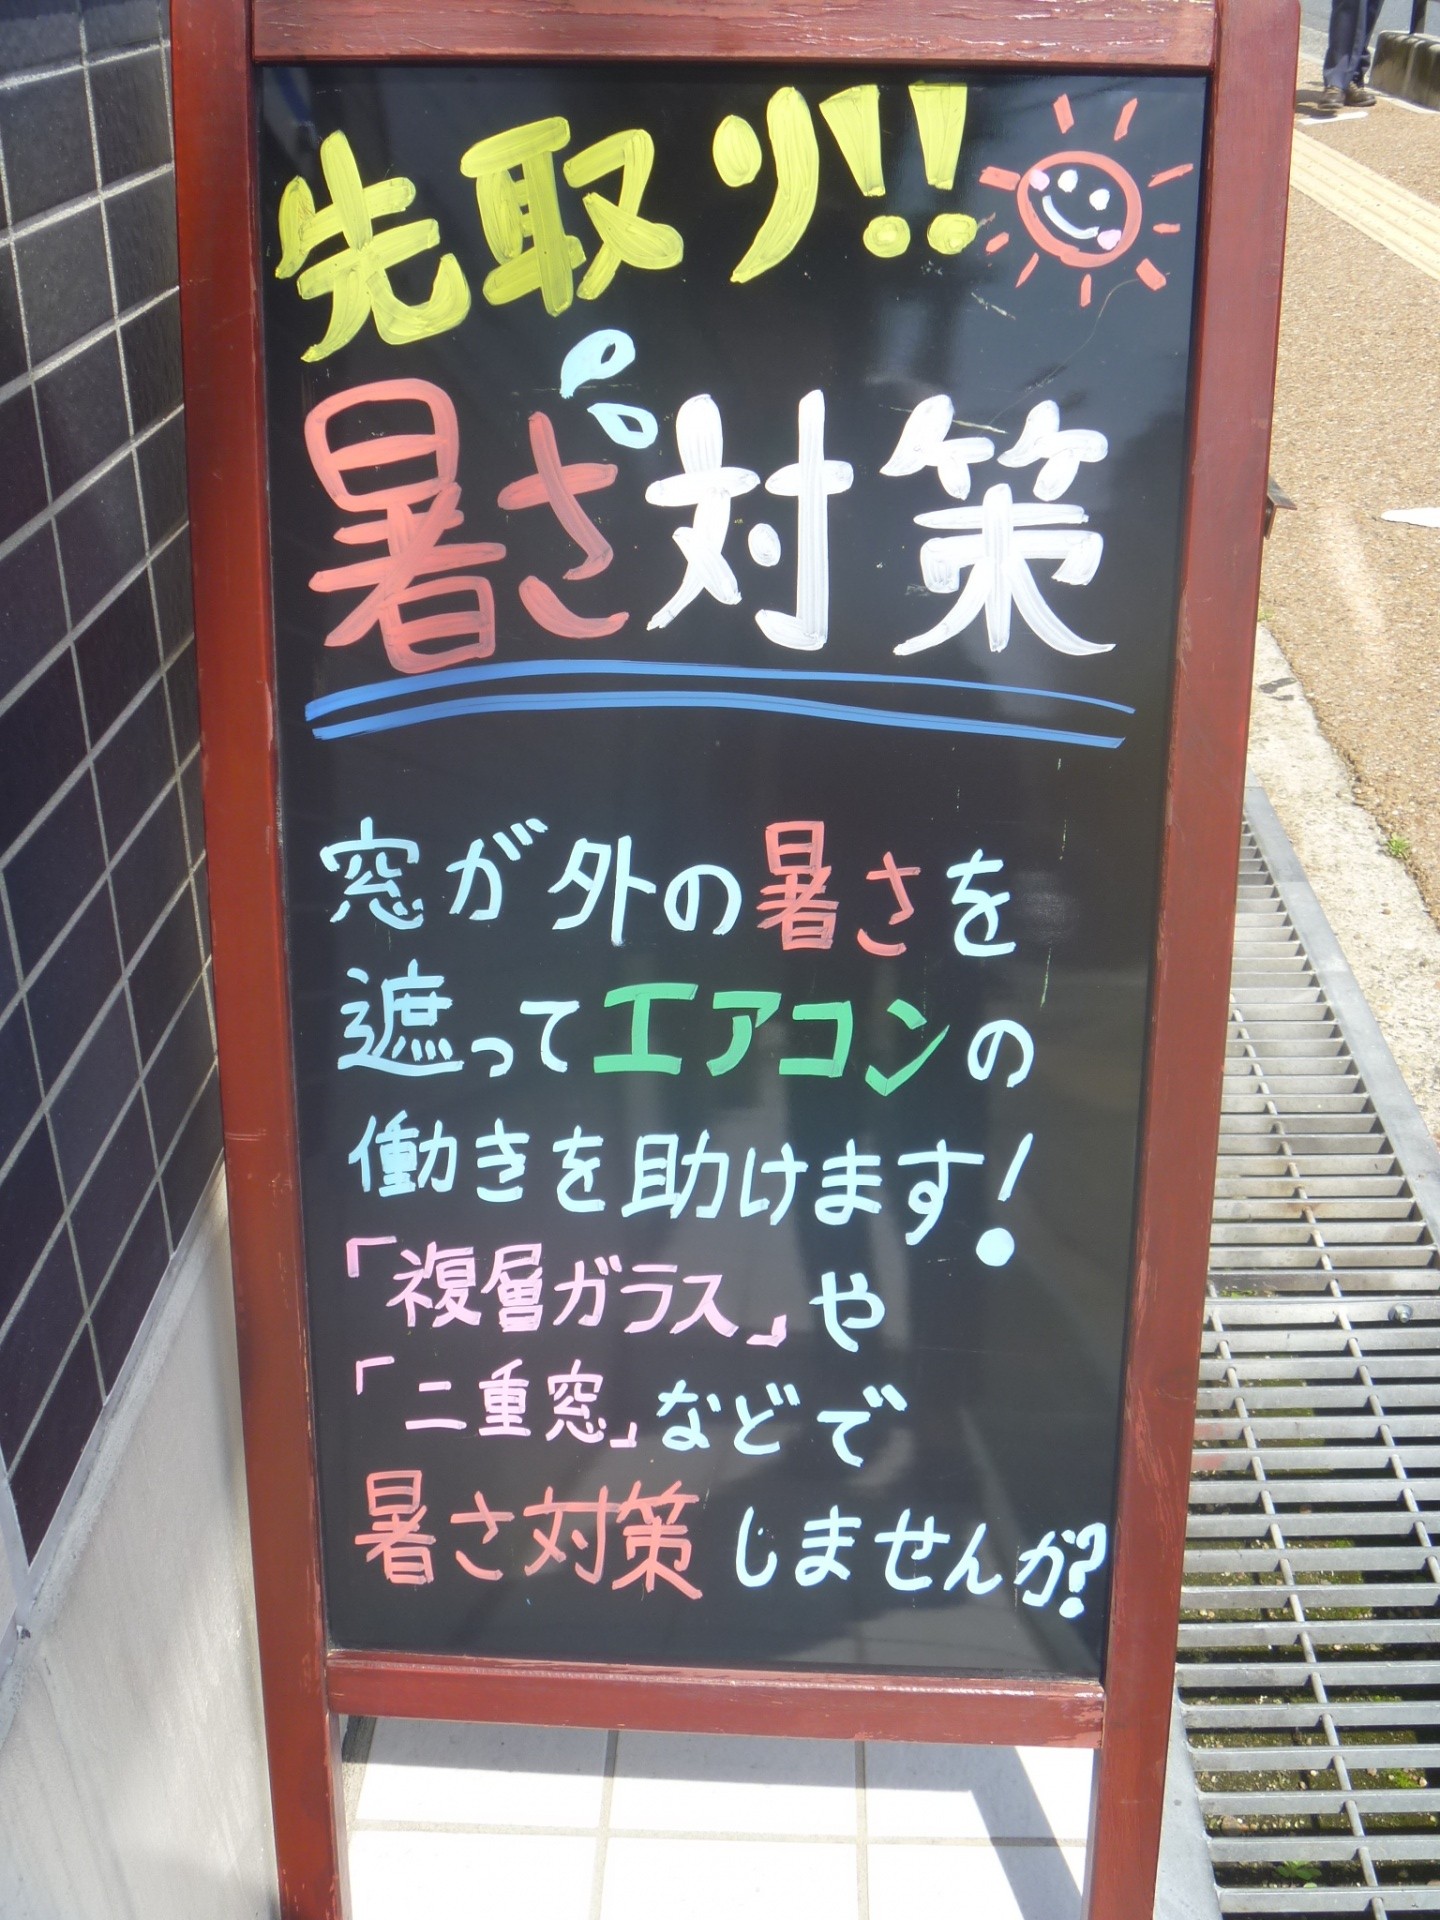 先取り!!
暑さ対策
窓が外の暑さを
遮ってエアコンの
働きを助けます!
「複層ガラス」や
「二重窓」などで
暑さ対策しませんか?